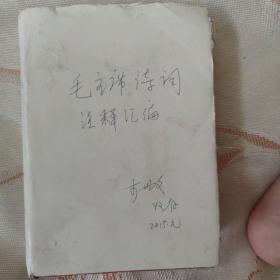 毛主席诗词
注释汇编
收存
2015.元